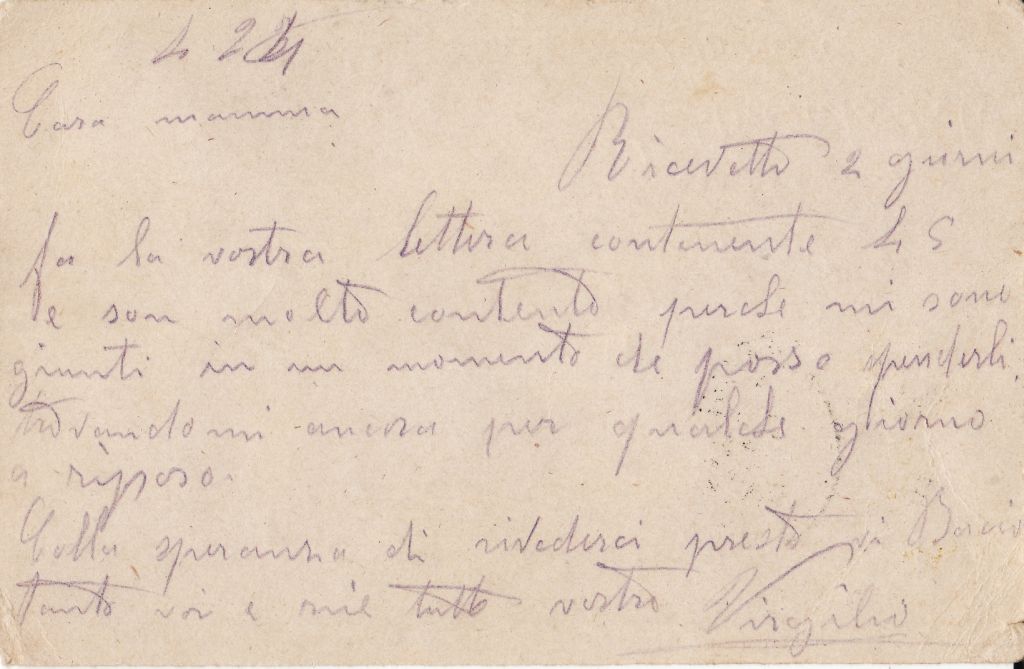 Cara mamma
Ricevetto 2 giorni
fa la vostra lettera contenente L 5
e son molto contento perche mi sono
giunti in un momento che posso spenderli
trovandomi ancora per qualche giorno
a riposo.
Colla speranza di rivederci presto vi Bacio
tanto voi e tutto vostro Virgilio